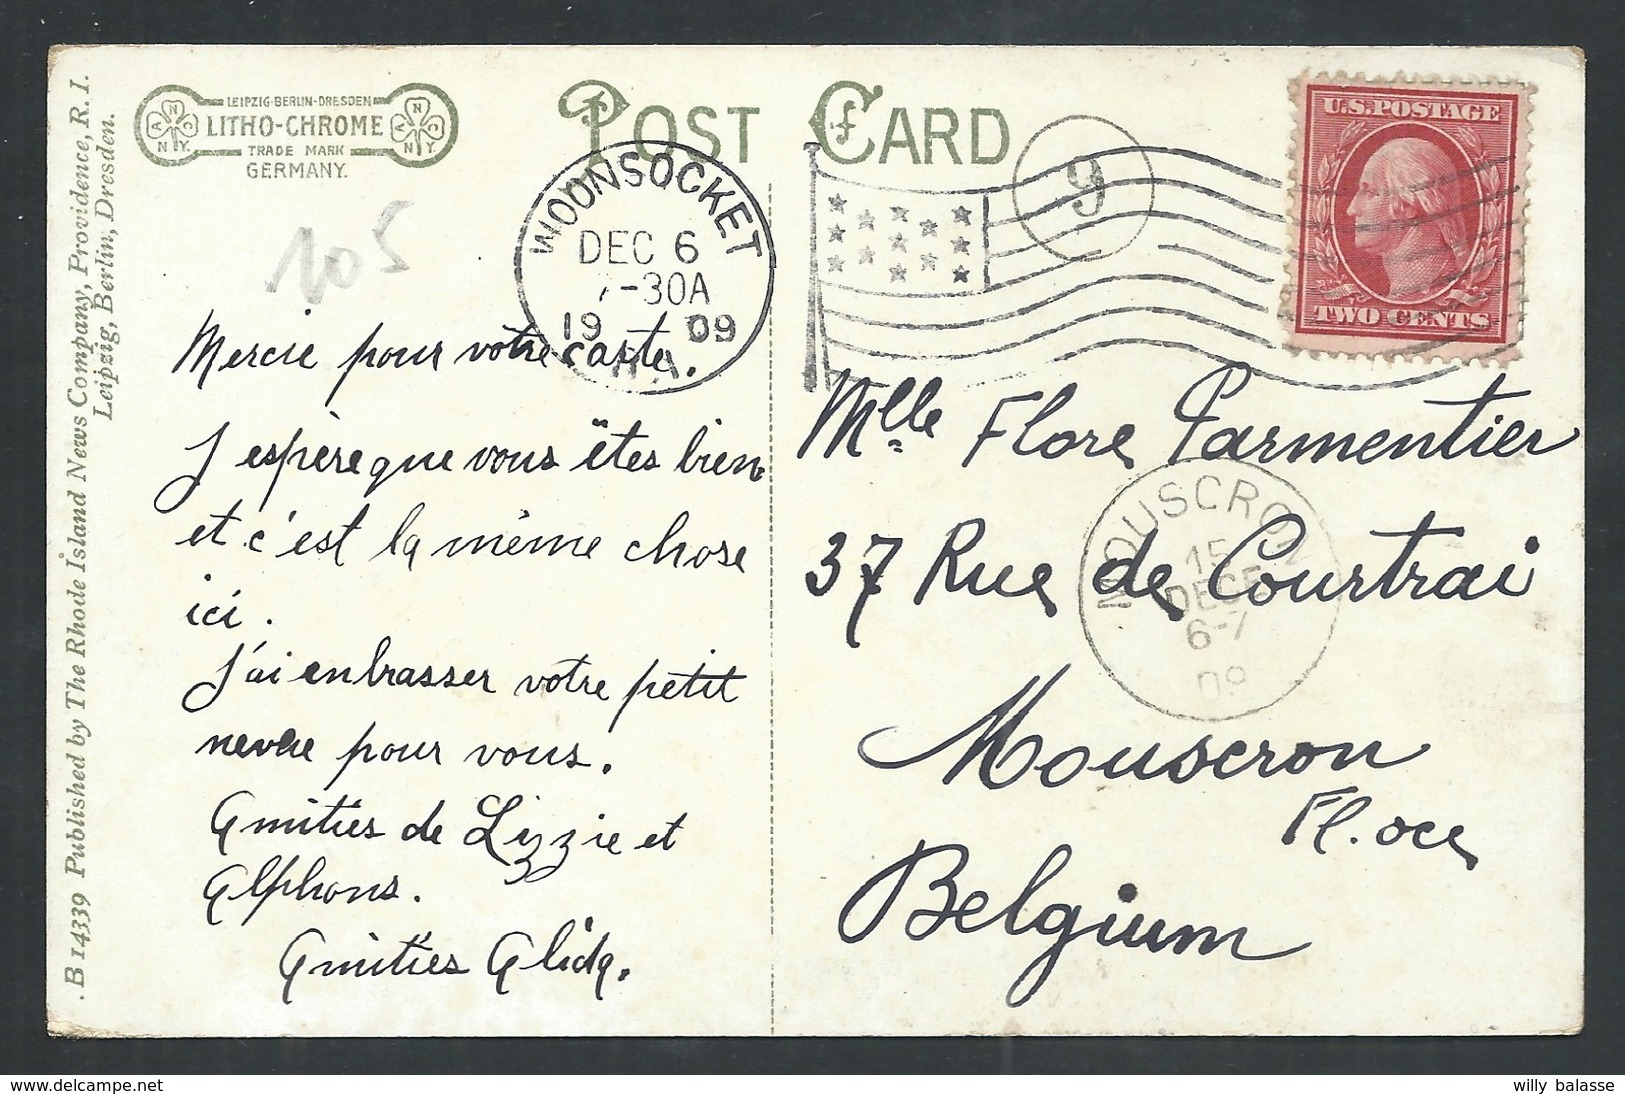 .B 14339 Published by The Rhode Island News Company, Providence, R. I.
Leipzig, Berlin, Dresden.
LEIPZIG·BERLIN·DRESDEN
LITHO-CHROME
TRADE MARK
GERMANY.
A N C
N Y.
POST CARD
105
WOONSOCKET
DEC 6
7-30A
19 09
9
U.S. POSTAGE
TWO CENTS
Mercie pour votre carte.
J espère que vous êtes bien
et c'est la même chose
ici.
J'ai enbrasser votre petit
neveu pour vous.
Amitiés de Lizzie et
Alphons.
Amitiés Alida.
Mlle Flore Parmentier
37 Rue de Courtrai
Mouscron
Fl. occ
Belgium
MOUSCRON
15
DECE
6-7
09
willy balasse